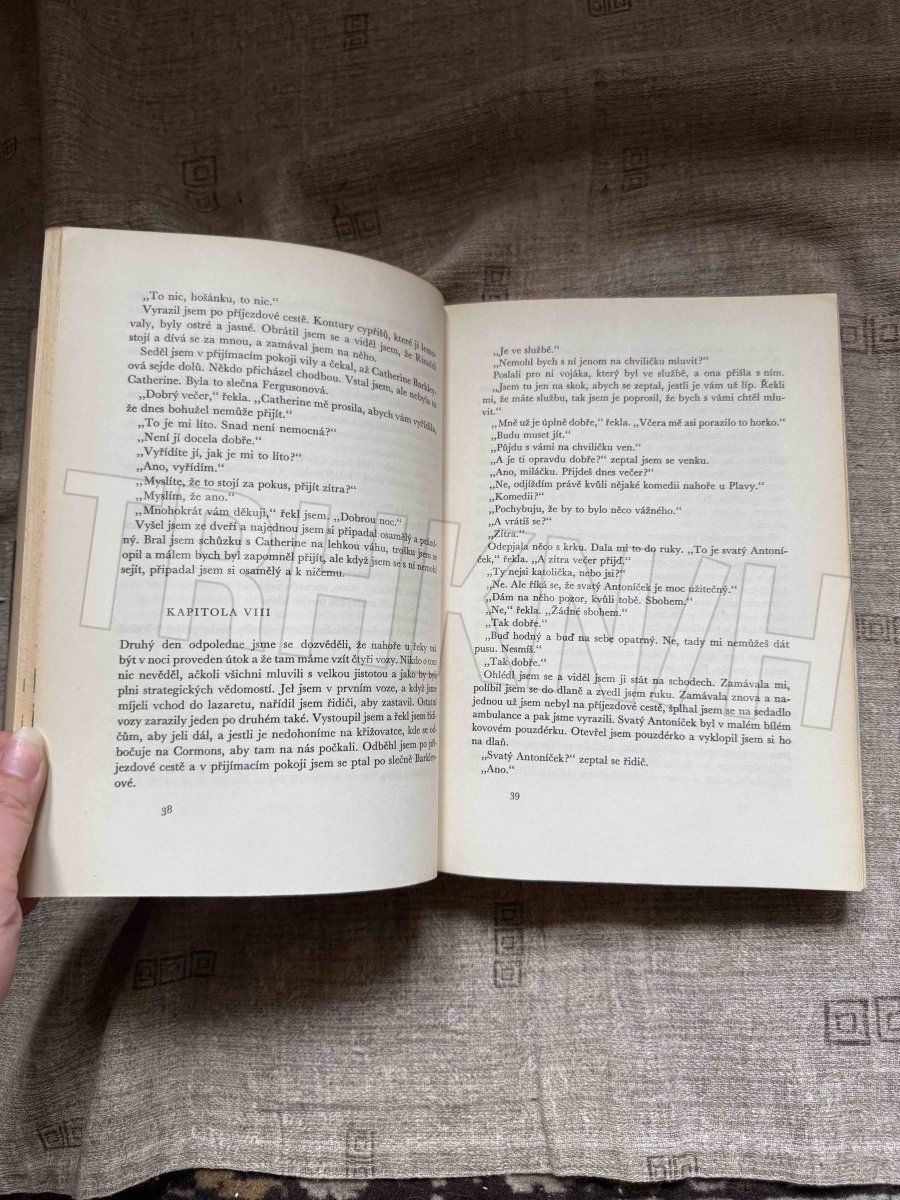 „To nic, hošánku, to nic.“
Vyrazil jsem po příjezdové cestě. Kontury cypřišů, které ji lemo-
valy, byly ostré a jasné. Obrátil jsem se a viděl jsem, že Rinaldi
stojí a dívá se za mnou, a zamával jsem na něho.
Seděl jsem v přijímacím pokoji vily a čekal, až Catherine Barkley-
ová sejde dolů. Někdo přicházel chodbou. Vstal jsem, ale nebyla to
Catherine. Byla to slečna Fergusonová.
„Dobrý večer,“ řekla. „Catherine mě prosila, abych vám vyřídila,
že dnes bohužel nemůže přijít.“
„To je mi líto. Snad není nemocná?“
„Není jí docela dobře.“
„Vyřídíte jí, jak je mi to líto?“
„Ano, vyřídím.“
„Myslíte, že to stojí za pokus, přijít zítra?“
„Myslím, že ano.“
„Mnohokrát vám děkuji,“ řekl jsem. „Dobrou noc.“
Vyšel jsem ze dveří a najednou jsem si připadal osamělý a prázd-
ný. Bral jsem schůzku s Catherine na lehkou váhu, trošku jsem se
opil a málem bych byl zapomněl přijít, ale když jsem se s ní nemohl
sejít, připadal jsem si osamělý a k ničemu.
KAPITOLA VIII
Druhý den odpoledne jsme se dozvěděli, že nahoře u řeky má
být v noci proveden útok a že tam máme vzít čtyři vozy. Nikdo o tom
nic nevěděl, ačkoli všichni mluvili s velkou jistotou a jako by byli
plni strategických vědomostí. Jel jsem v prvním voze, a když jsme
míjeli vchod do lazaretu, nařídil jsem řidiči, aby zastavil. Ostatní
vozy zarazily jeden po druhém také. Vystoupil jsem a řekl jsem řidi-
čům, aby jeli dál, a jestli je nedohoníme na křižovatce, kde se od-
bočuje na Cormons, aby tam na nás počkali. Odběhl jsem po pří-
jezdové cestě a v přijímacím pokoji jsem se ptal po slečně Barkley-
ové.
38
„Je ve službě.“
„Nemohl bych s ní jenom na chviličku mluvit?“
Poslali pro ni vojáka, který byl ve službě, a ona přišla s ním.
„Jsem tu jen na skok, abych se zeptal, jestli je vám už líp. Řekli
mi, že máte službu, tak jsem je poprosil, že bych s vámi chtěl mlu-
vit.“
„Mně už je úplně dobře,“ řekla. „Včera mě asi porazilo to horko.“
„Budu muset jít.“
„Půjdu s vámi na chviličku ven.“
„A je ti opravdu dobře?“ zeptal jsem se venku.
„Ano, miláčku. Přijdeš dnes večer?“
„Ne, odjíždím právě kvůli nějaké komedii nahoře u Plavy.“
„Komedii?“
„Pochybuju, že by to bylo něco vážného.“
„A vrátíš se?“
„Zítra.“
Odepjala něco s krku. Dala mi to do ruky. „To je svatý Antoní-
ček,“ řekla. „A zítra večer přijď.“
„Ty nejsi katolička, nebo jsi?“
„Ne. Ale říká se, že svatý Antoníček je moc užitečný.“
„Dám na něho pozor, kvůli tobě. Sbohem.“
„Ne,“ řekla. „Žádné sbohem.“
„Tak dobře.“
„Buď hodný a buď na sebe opatrný. Ne, tady mi nemůžeš dát
pusu. Nesmíš.“
„Tak dobře.“
Ohlédl jsem se a viděl jsem ji stát na schodech. Zamávala mi,
políbil jsem se do dlaně a zvedl jsem ruku. Zamávala znova a na-
jednou už jsem nebyl na příjezdové cestě, šplhal jsem se na sedadlo
ambulance a pak jsme vyrazili. Svatý Antoníček byl v malém bílém
kovovém pouzdérku. Otevřel jsem pouzdérko a vyklopil jsem si ho
na dlaň.
„Svatý Antoníček?“ zeptal se řidič.
„Ano.“
39